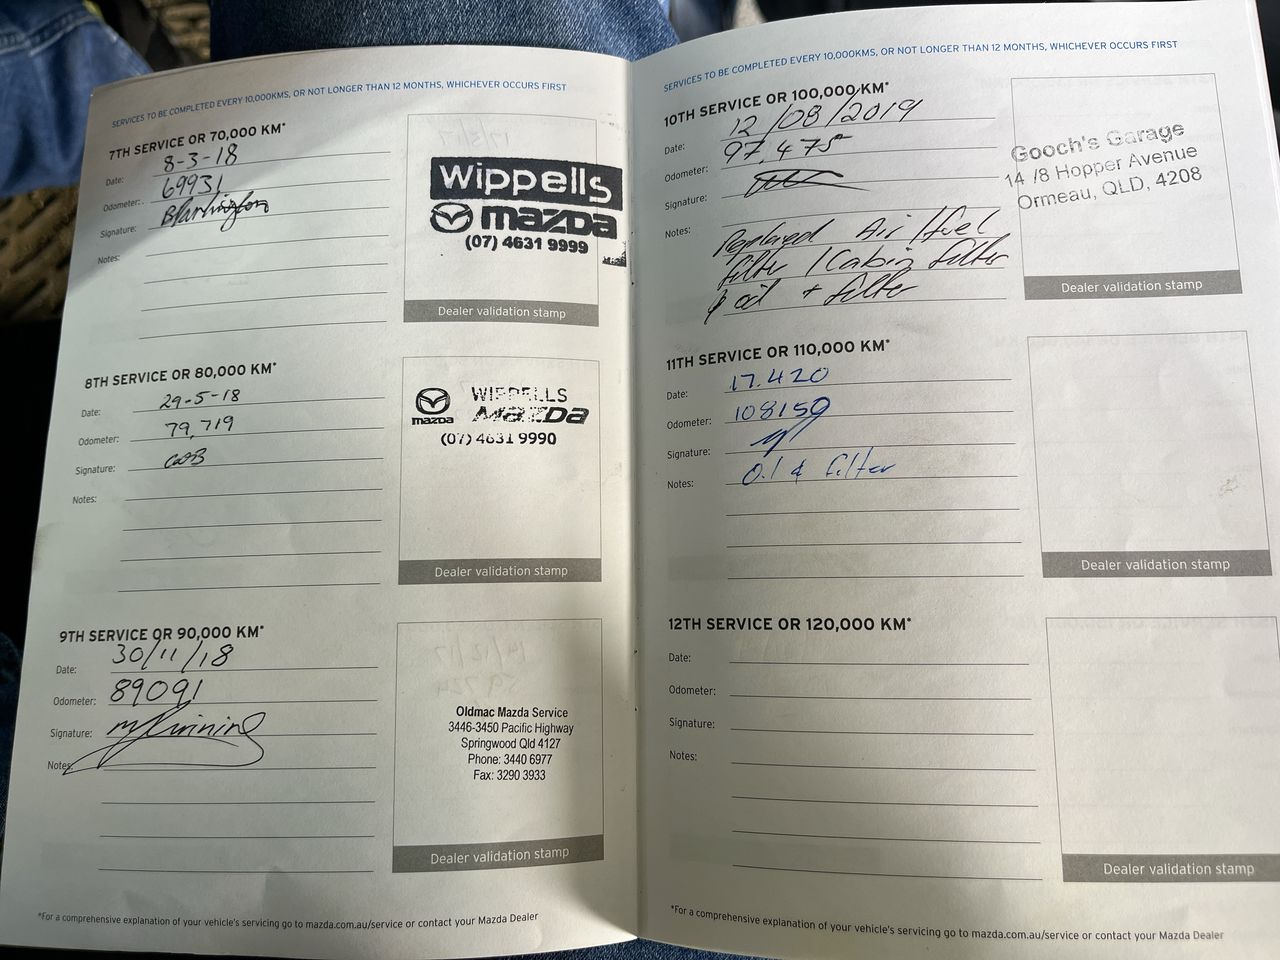 SERVICES TO BE COMPLETED EVERY 10,000KMS, OR NOT LONGER THAN 12 MONTHS, WHICHEVER OCCURS FIRST
7TH SERVICE OR 70,000 KM*
Date: 8-3-18
Odometer: 69931
Signature:
Notes:
Wippells
mazda
(07) 4631 9999
Dealer validation stamp
8TH SERVICE OR 80,000 KM*
Date: 29-5-18
Odometer: 79,719
Signature:
Notes:
mazda
WIPPELLS
Mazda
(07) 4631 9990
Dealer validation stamp
9TH SERVICE OR 90,000 KM*
Date: 30/11/18
Odometer: 89091
Signature:
Notes:
Oldmac Mazda Service
3446-3450 Pacific Highway
Springwood Qld 4127
Phone: 3440 6977
Fax: 3290 3933
Dealer validation stamp
*For a comprehensive explanation of your vehicle's servicing go to mazda.com.au/service or contact your Mazda Dealer
SERVICES TO BE COMPLETED EVERY 10,000KMS, OR NOT LONGER THAN 12 MONTHS, WHICHEVER OCCURS FIRST
10TH SERVICE OR 100,000 KM*
Date: 12/08/2019
Odometer: 97,475
Signature:
Notes: Replaced Air/fuel
filter / Cabin filter
oil + filter
Gooch's Garage
14 /8 Hopper Avenue
Ormeau, QLD, 4208
Dealer validation stamp
11TH SERVICE OR 110,000 KM*
Date: 17.420
Odometer: 108159
Signature:
Notes: Oil & filter
Dealer validation stamp
12TH SERVICE OR 120,000 KM*
Date:
Odometer:
Signature:
Notes:
Dealer validation stamp
*For a comprehensive explanation of your vehicle's servicing go to mazda.com.au/service or contact your Mazda Dealer